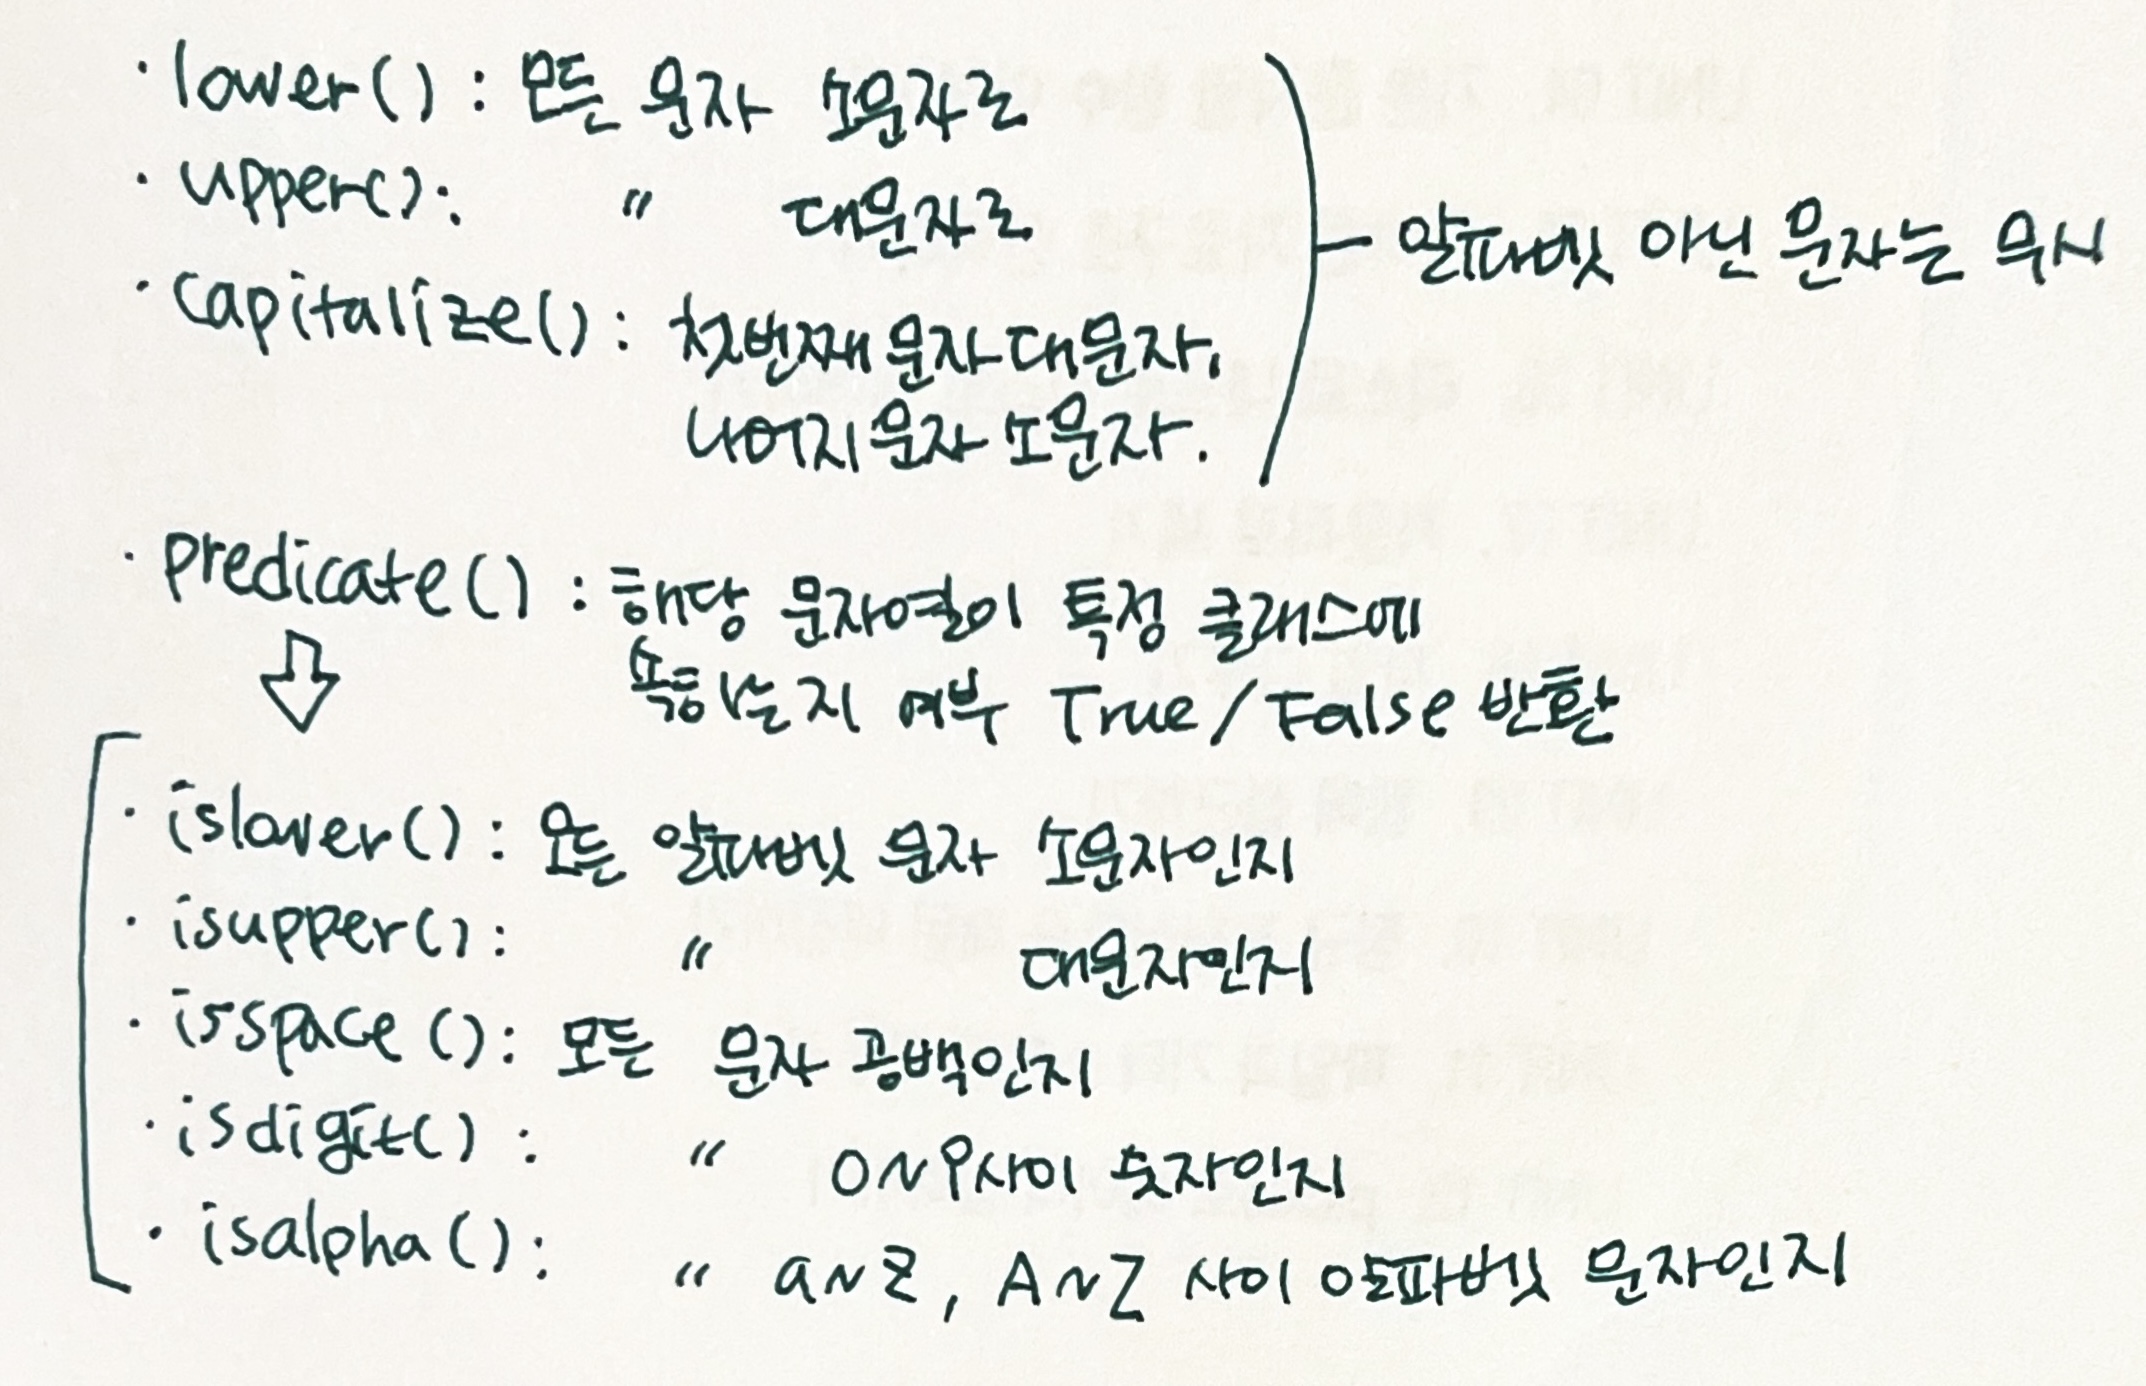 · lower() : 모든 문자 소문자로
· upper() : 〃 대문자로
· capitalize() : 첫번째 문자 대문자,
나머지 문자 소문자.
알파벳 아닌 문자는 무시
· predicate() : 해당 문자열이 특정 클래스에
속하는지 여부 True/False 반환
· islower() : 모든 알파벳 문자 소문자인지
· isupper() : 〃 대문자인지
· isspace() : 모든 문자 공백인지
· isdigit() : 〃 0~9사이 숫자인지
· isalpha() : 〃 a~z, A~Z 사이 알파벳 문자인지